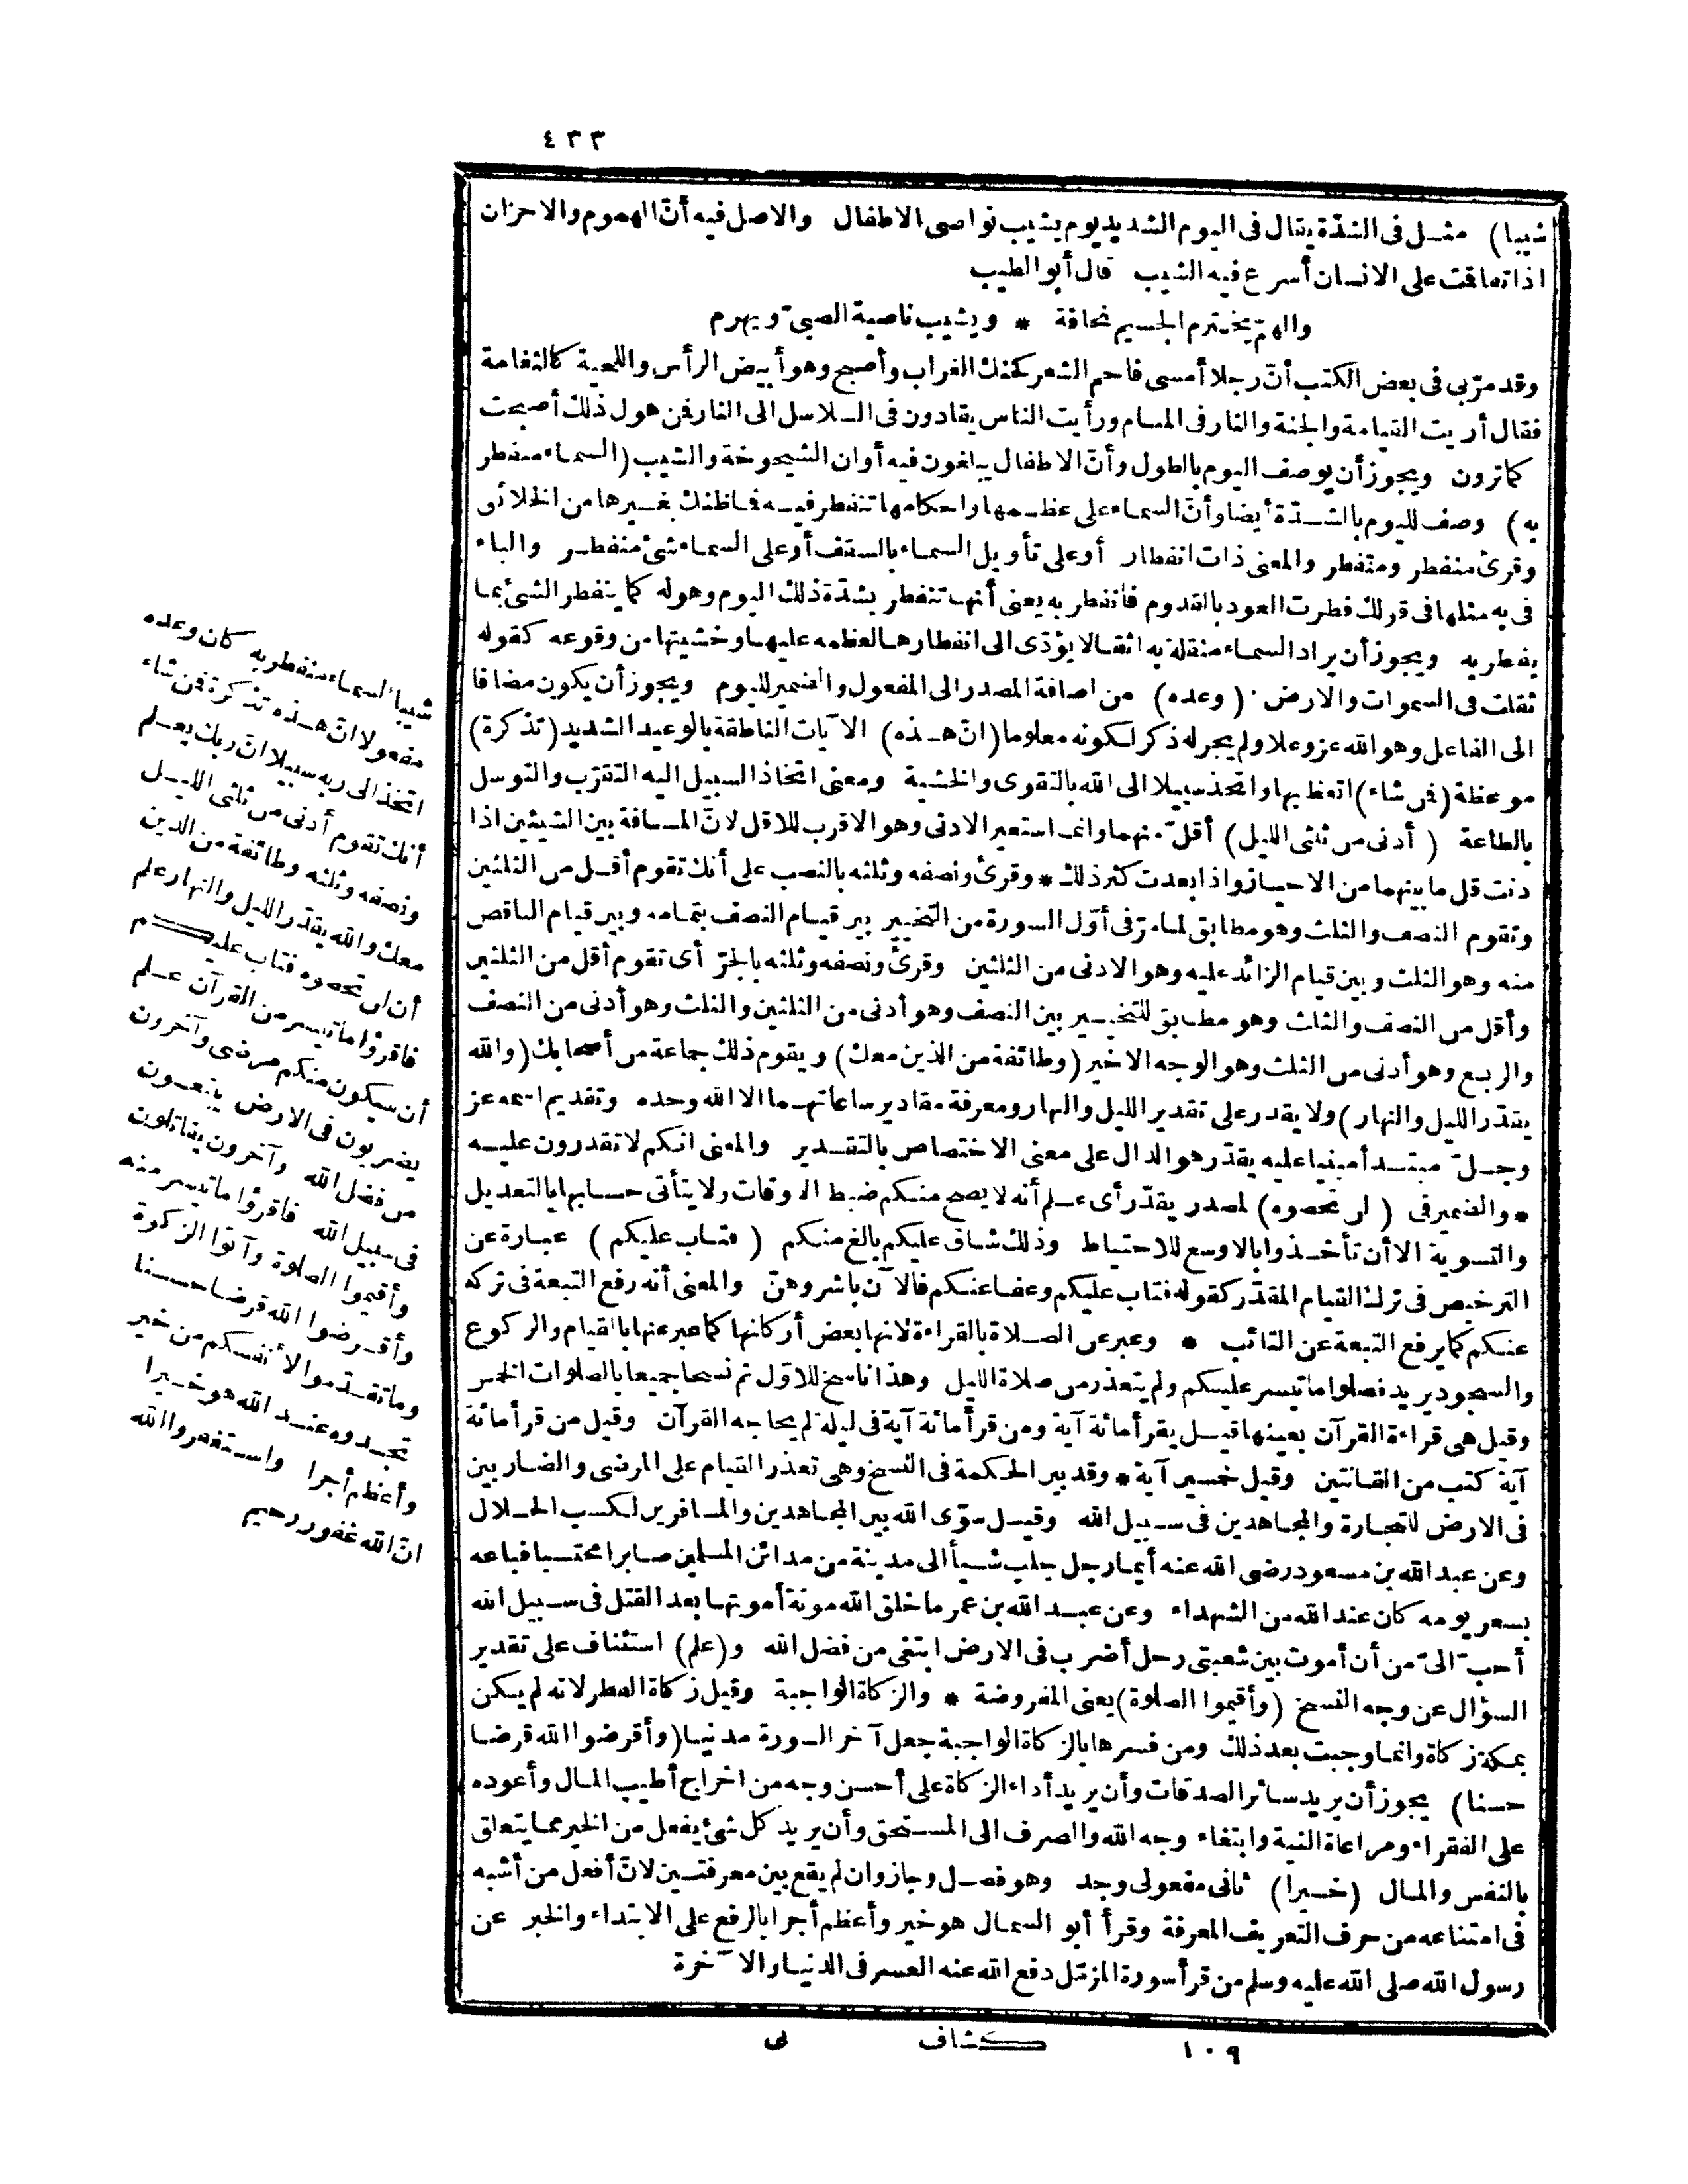 ٤٣٣
شيبا) مثل فى الشدّة يقال فى اليوم الشديد يوم يشيب نواصى الاطفال والاصل فيه أنّ الهموم والاحزان
اذا تفاقمت على الانسان أسرع فيه الشيب قال أبو الطيب
والهمّ يخترم الجسيم نحافة * ويشيب ناصية الصبىّ ويهرم
وقد مرّ بى فى بعض الكتب أنّ رجلا أمسى فاحم الشعر كحنك الغراب وأصبح وهو أبيض الرأس واللحية كالثغامة
فقال أريت القيامة والجنة والنار فى المنام ورأيت الناس يقادون فى السلاسل الى النار فمن هول ذلك أصبحت
كما ترون ويجوز أن يوصف اليوم بالطول وأنّ الاطفال يبلغون فيه أوان الشيخوخة والشيب (السماء منفطر
به) وصف لليوم بالشدّة أيضا وأنّ السماء على عظمها واحكامها تنفطر فيه فما ظنك بغيرها من الخلائق
وقرئ منفطر ومتفطر والمعنى ذات انفطار أو على تأويل السماء بالسقف أو على السماء شئ منفطر والباء
فى به مثلها فى قولك فطرت العود بالقدوم فانفطر به يعنى أنها تنفطر بشدّة ذلك اليوم وهوله كما ينفطر الشئ بما
يفطر به ويجوز أن يراد السماء مثقلة به اثقالا يؤدّى الى انفطارها لعظمه عليها وخشيتها من وقوعه كقوله
ثقلت فى السموات والارض (وعده) من اضافة المصدر الى المفعول والضمير لليوم ويجوز أن يكون مضافا
الى الفاعل وهو الله عز وعلا ولم يجر له ذكر لكونه معلوما (انّ هذه) الآيات الناطقة بالوعيد الشديد (تذكرة)
موعظة (فمن شاء) اتعظ بها واتخذ سبيلا الى الله بالتقوى والخشية ومعنى اتخاذ السبيل اليه التقرّب والتوسل
بالطاعة (أدنى من ثلثى الليل) أقلّ منهما وانما استعير الادنى وهو الاقرب للاقل لانّ المسافة بين الشيئين اذا
دنت قل ما بينهما من الاحياز واذا بعدت كثر ذلك * وقرئ ونصفه وثلثه بالنصب على أنك تقوم أقل من الثلثين
وتقوم النصف والثلث وهو مطابق لما مرّ فى أوّل السورة من التخيير بين قيام النصف بتمامه وبين قيام الناقص
منه وهو الثلث وبين قيام الزائد عليه وهو الادنى من الثلثين وقرئ ونصفه وثلثه بالجرّ أى تقوم أقل من الثلثين
وأقل من النصف والثلث وهو مطابق للتخيير بين النصف وهو أدنى من الثلثين والثلث وهو أدنى من النصف
والربع وهو أدنى من الثلث وهو الوجه الاخير (وطائفة من الذين معك) ويقوم ذلك جماعة من أصحابك (والله
يقدّر الليل والنهار) ولا يقدر على تقدير الليل والنهار ومعرفة مقادير ساعاتهما الا الله وحده وتقديم اسمه عز
وجلّ مبتدأ مبنيا عليه يقدّر هو الدال على معنى الاختصاص بالتقدير والمعنى انكم لا تقدرون عليه
* والضمير فى (لن تحصوه) لمصدر يقدّر أى علم أنه لا يصح منكم ضبط الاوقات ولا يتأتى حسابها بالتعديل
والتسوية الا أن تأخذوا بالاوسع للاحتياط وذلك شاق عليكم بالغ منكم (فتاب عليكم) عبارة عن
الترخيص فى ترك القيام المقدّر كقوله فتاب عليكم وعفا عنكم فالآن باشروهنّ والمعنى أنه رفع التبعة فى تركه
عنكم كما يرفع التبعة عن التائب * وعبر عن الصلاة بالقراءة لانها بعض أركانها كما عبر عنها بالقيام والركوع
والسجود يريد فصلوا ما تيسر عليكم ولم يتعذر من صلاة الليل وهذا ناسخ للاوّل ثم نسخا جميعا بالصلوات الخمس
وقيل هى قراءة القرآن بعينها قيل يقرأ مائة آية ومن قرأ مائة آية فى ليلة لم يحاجه القرآن وقيل من قرأ مائة
آية كتب من القانتين وقيل خمسين آية * وقد بين الحكمة فى النسخ وهى تعذر القيام على المرضى والضاربين
فى الارض للتجارة والمجاهدين فى سبيل الله وقيل سوّى الله بين المجاهدين والمسافرين لكسب الحلال
وعن عبد الله بن مسعود رضى الله عنه أيما رجل جلب شيأ الى مدينة من مدائن المسلمين صابرا محتسبا فباعه
بسعر يومه كان عند الله من الشهداء وعن عبد الله بن عمر ما خلق الله موتة أموتها بعد القتل فى سبيل الله
أحبّ الىّ من أن أموت بين شعبتى رحل أضرب فى الارض ابتغى من فضل الله و(علم) استئناف على تقدير
السؤال عن وجه النسخ (وأقيموا الصلوة) يعنى المفروضة * والزكاة الواجبة وقيل زكاة الفطر لانه لم يكن
بمكة زكاة وانما وجبت بعد ذلك ومن فسرها بالزكاة الواجبة جعل آخر السورة مدنيا (وأقرضوا الله قرضا
حسنا) يجوز أن يريد سائر الصدقات وأن يريد أداء الزكاة على أحسن وجه من اخراج أطيب المال وأعوده
على الفقراء ومراعاة النية وابتغاء وجه الله والصرف الى المستحق وأن يريد كل شئ يفعل من الخير مما يتعلق
بالنفس والمال (خيرا) ثانى مفعولى وجد وهو فصل وجاز وان لم يقع بين معرفتين لانّ أفعل من أشبه
فى امتناعه من حرف التعريف المعرفة وقرأ أبو السمال هو خير وأعظم أجرا بالرفع على الابتداء والخبر عن
رسول الله صلى الله عليه وسلم من قرأ سورة المزمّل دفع الله عنه العسر فى الدنيا والآخرة
شيبا السماء منفطر به كان وعده
مفعولا انّ هذه تذكرة فمن شاء
اتخذ الى ربه سبيلا انّ ربك يعلم
أنك تقوم أدنى من ثلثى الليل
ونصفه وثلثه وطائفة من الذين
معك والله يقدّر الليل والنهار علم
أن لن تحصوه فتاب عليكم
فاقرؤا ما تيسر من القرآن علم
أن سيكون منكم مرضى وآخرون
يضربون فى الارض يبتغون
من فضل الله وآخرون يقاتلون
فى سبيل الله فاقرؤا ما تيسر منه
وأقيموا الصلوة وآتوا الزكوة
وأقرضوا الله قرضا حسنا
وما تقدّموا لأنفسكم من خير
تجدوه عند الله هو خيرا
وأعظم أجرا واستغفروا الله
انّ الله غفور رحيم
١٠٩ كشاف نى